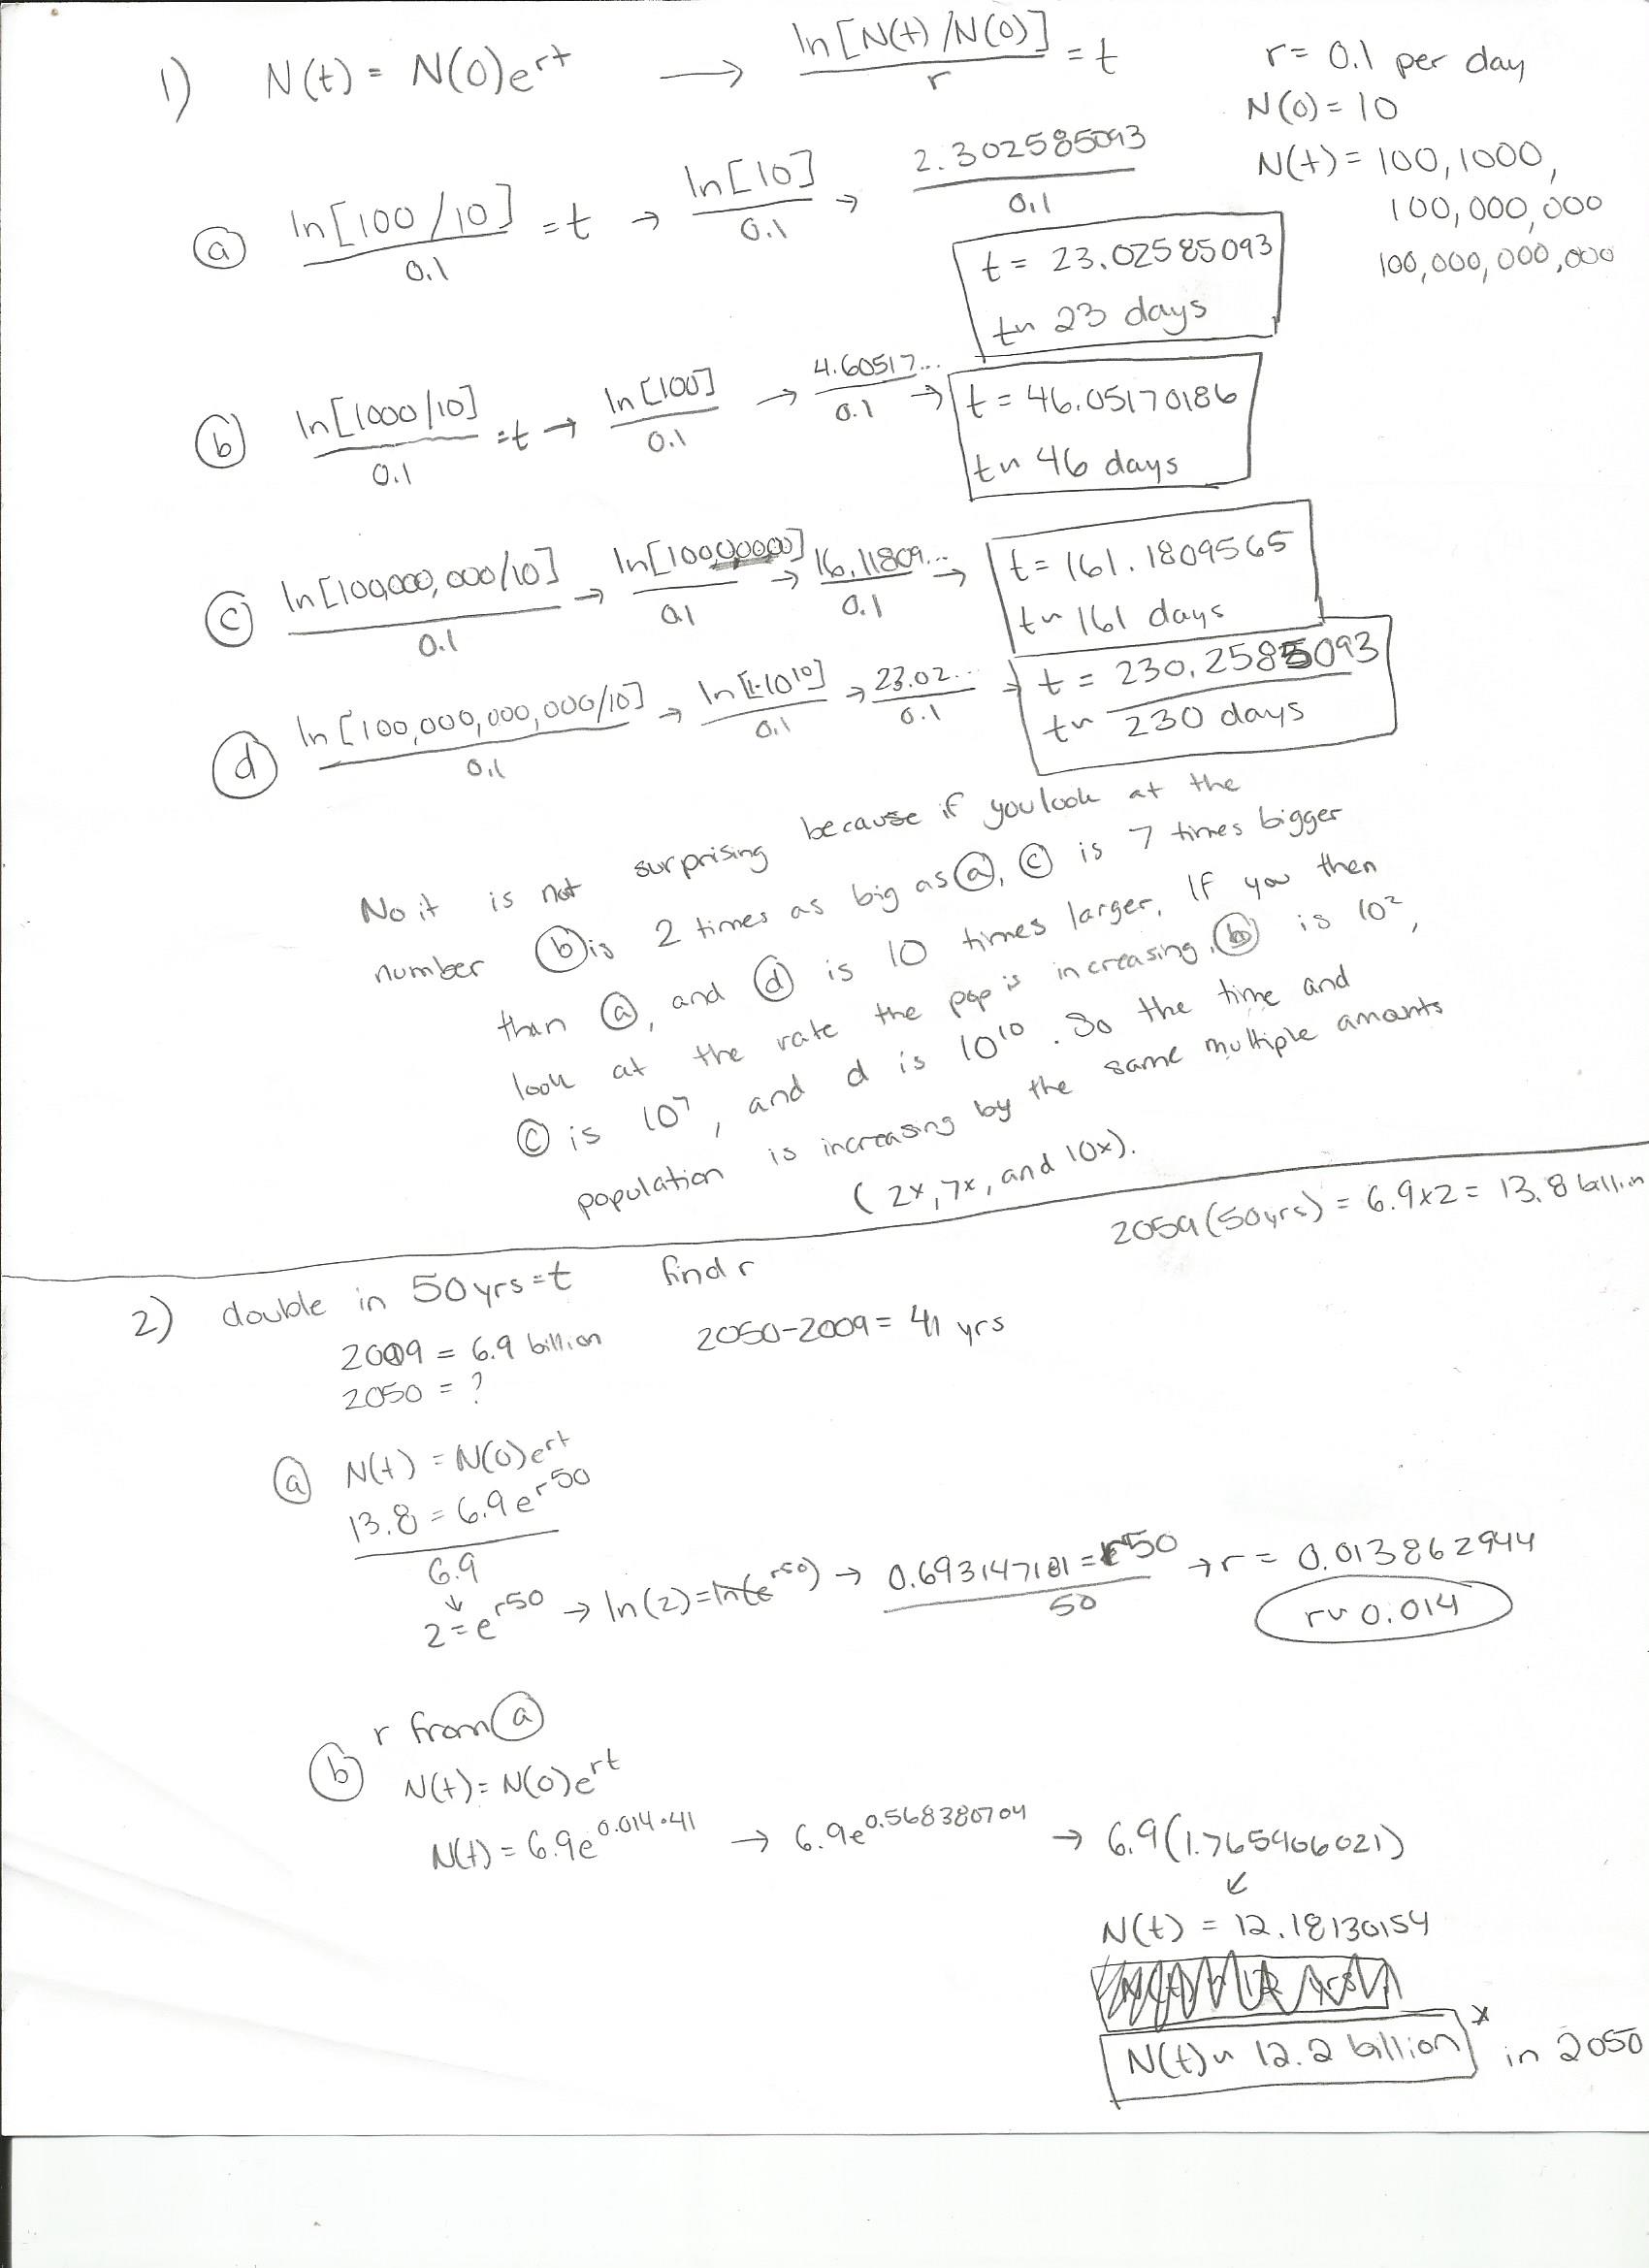 1) N(t) = N(0)e^rt → ln[N(t)/N(0)] / r = t
r = 0.1 per day
N(0) = 10
N(t) = 100, 1000,
100,000,000
100,000,000,000
ⓐ ln[100/10] / 0.1 = t → ln[10] / 0.1 → 2.302585093 / 0.1
t = 23.02585093
t ~ 23 days
ⓑ ln[1000/10] / 0.1 = t → ln[100] / 0.1 → 4.60517... / 0.1 → t = 46.05170186
t ~ 46 days
ⓒ ln[100,000,000/10] / 0.1 → ln[10000000] / 0.1 → 16.11809... / 0.1 → t = 161.1809565
t ~ 161 days
ⓓ ln[100,000,000,000/10] / 0.1 → ln[1·10^10] / 0.1 → 23.02... / 0.1 → t = 230.2585093
t ~ 230 days
No it is not surprising because if you look at the
number ⓑ is 2 times as big as ⓐ, ⓒ is 7 times bigger
than ⓐ, and ⓓ is 10 times larger. If you then
look at the rate the pop is increasing, ⓑ is 10^2,
ⓒ is 10^7, and d is 10^10. So the time and
population is increasing by the same multiple amounts
(2x, 7x, and 10x).
2059 (50yrs) = 6.9x2 = 13.8 billion
2) double in 50 yrs = t find r
2009 = 6.9 billion 2050-2009 = 41 yrs
2050 = ?
ⓐ N(t) = N(0)e^rt
13.8 = 6.9e^r50
6.9
↓
2 = e^r50 → ln(2) = ln(e^r50) → 0.693147181 = r50 / 50 → r = 0.013862944
r ~ 0.014
ⓑ r from ⓐ
N(t) = N(0)e^rt
N(t) = 6.9e^0.014·41 → 6.9e^0.568380704 → 6.9(1.765406021)
↙
N(t) = 12.18130154
N(t) ~ 12.2 billion * in 2050